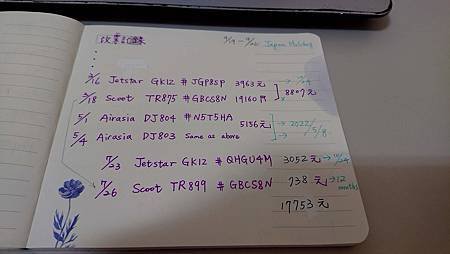 放棄記錄 4/19 - 4/26 Japan Holiday
3/16 Jetstar GK12 #JGP8SP 3963元
3/18 Scoot TR875 #GBCS8N 19160円 8807元
5/1 Airasia DJ804 #N5T5HA 5136元 → 2022/5/8
5/4 Airasia DJ803 Same as above
7/23 Jetstar GK12 #QHGU4M 3052元 → 10/24
7/26 Scoot TR899 #GBCS8N 738元 → 12 months
17753元